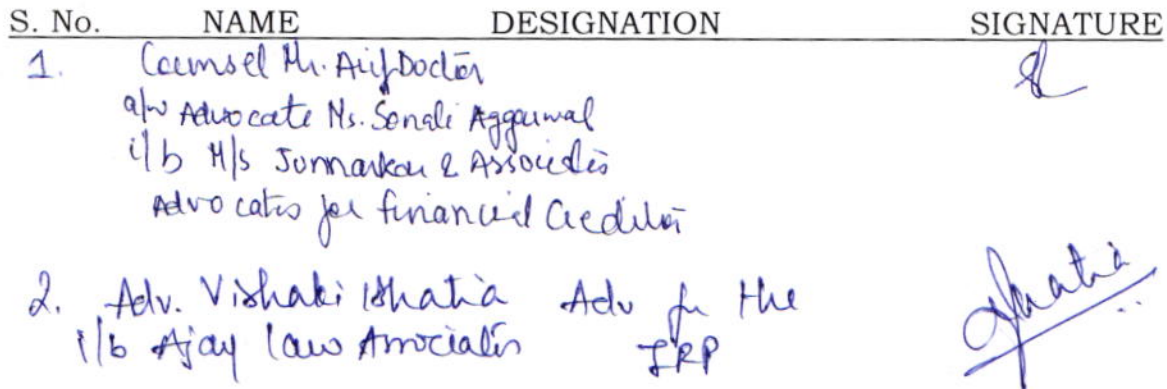 S. No. NAME DESIGNATION SIGNATURE
1. Counsel Mr. Arif Doctor
a/w Advocate Ms. Sonali Aggarwal
i/b M/s Junnarkar & Associates
Advocates for financial Creditor
2. Adv. Vishaki Bhatia Adv for the
i/b Ajay law Associates IRP